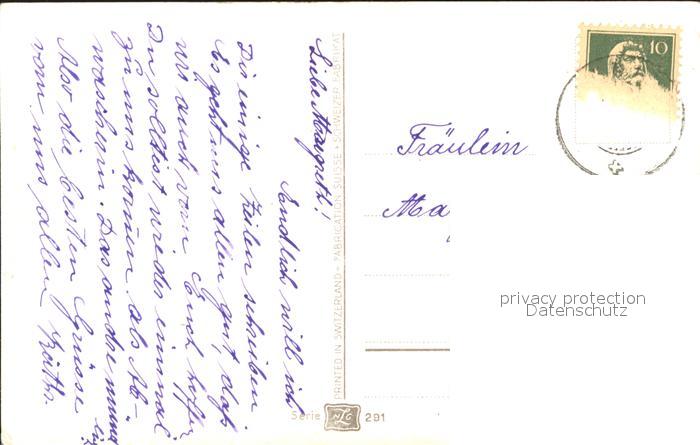 Liebe Margrith!
Endlich will ich
Dir einige Zeilen schreiben.
Es geht uns allen gut, das
wir auch von Euch hoffen
Du solltest wieder einmal
zu uns kommen als Ab-
wascherin. Das andre mündlich
Also die besten Grüsse
von uns allen Käthi.
PRINTED IN SWITZERLAND - FABRICATION SUISSE - SCHWEIZER FABRIKAT
10
Fräulein
Ma
privacy protection
Datenschutz
Serie 291